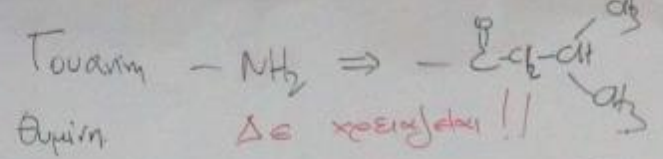 Γουανίνη - NH₂ ⇒ - C(=O)-CH₂-CH(CH₃)CH₃
Θυμίνη Δε χρειάζεται !!